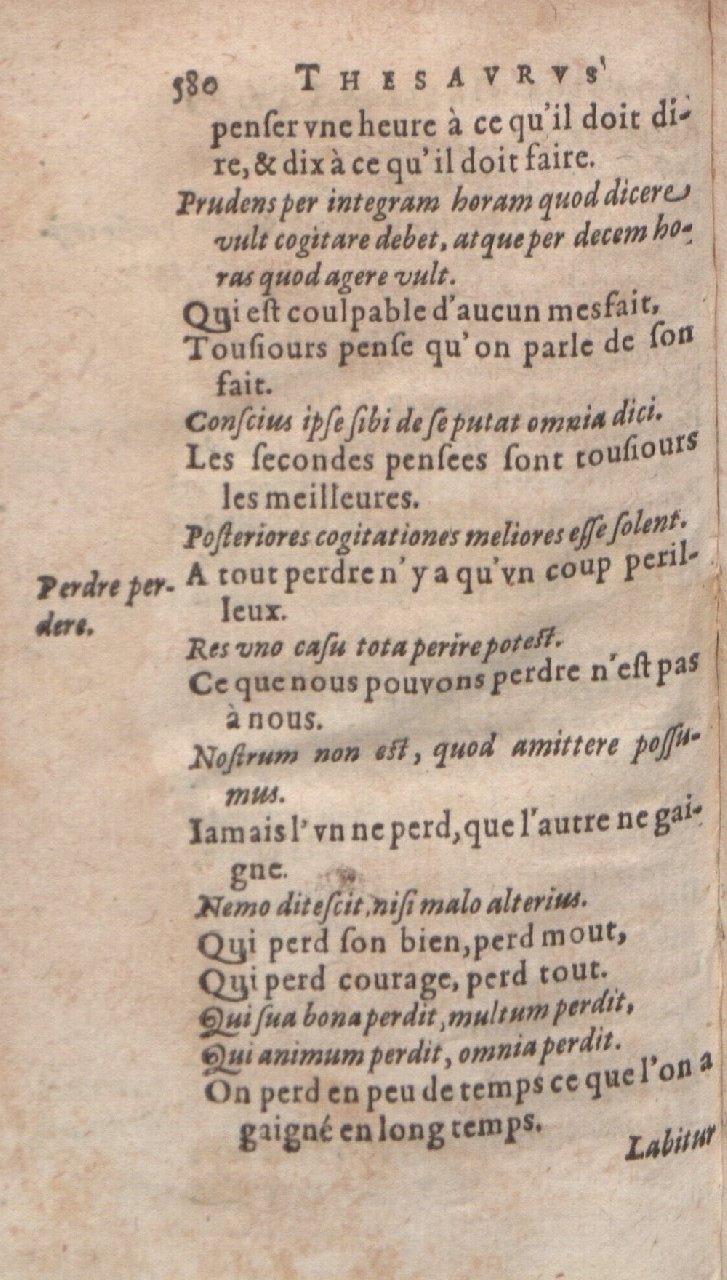 580 THESAVRVS
penſer vne heure à ce qu'il doit di-
re, & dix à ce qu'il doit faire.
Prudens per integram horam quod dicere
vult cogitare debet, atque per decem ho-
ras quod agere vult.
Qui eſt coulpable d'aucun mesfait,
Touſiours penſe qu'on parle de ſon
fait.
Conſcius ipſe ſibi de ſe putat omnia dici.
Les ſecondes penſees ſont touſiours
les meilleures.
Poſteriores cogitationes meliores eſſe ſolent.
Perdre per-
dere.
A tout perdre n'y a qu'vn coup peril-
leux.
Res vno caſu tota perire poteſt.
Ce que nous pouvons perdre n'eſt pas
à nous.
Noſtrum non eſt, quod amittere poſſu-
mus.
Iamais l'vn ne perd, que l'autre ne gai-
gne.
Nemo diteſcit, niſi malo alterius.
Qui perd ſon bien, perd mout,
Qui perd courage, perd tout.
Qui ſua bona perdit, multum perdit,
Qui animum perdit, omnia perdit.
On perd en peu de temps ce que l'on a
gaigné en long temps.
Labitur